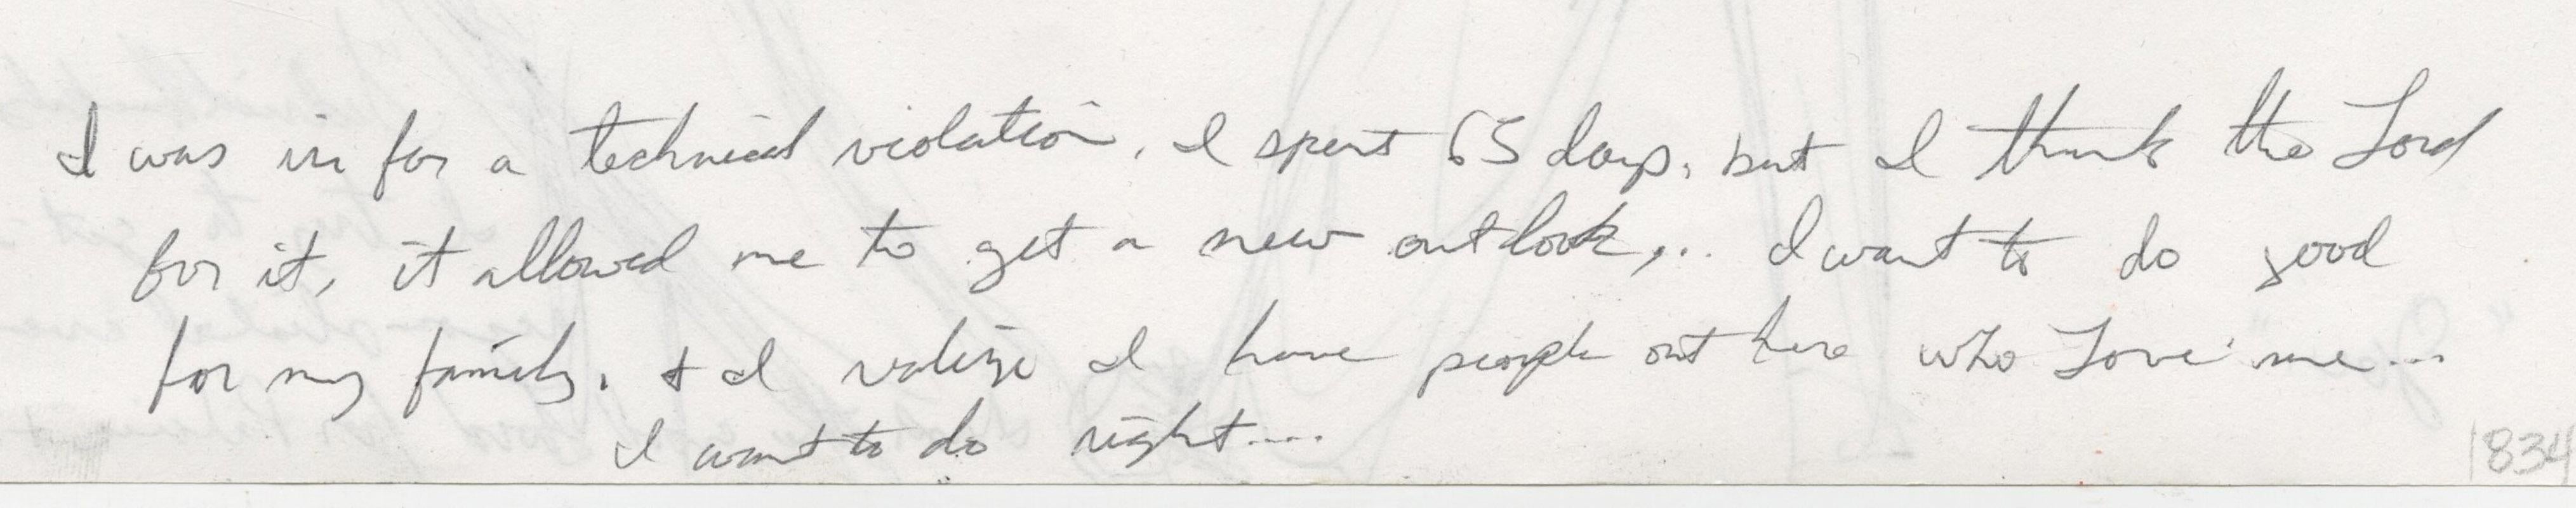 I was in for a technical violation. I spent 65 days, but I think the Lord
for it, it allowed me to get a new outlook,.. I want to do good
for my family. & I realize I have people out here who Love me...
I want to do right....
1834